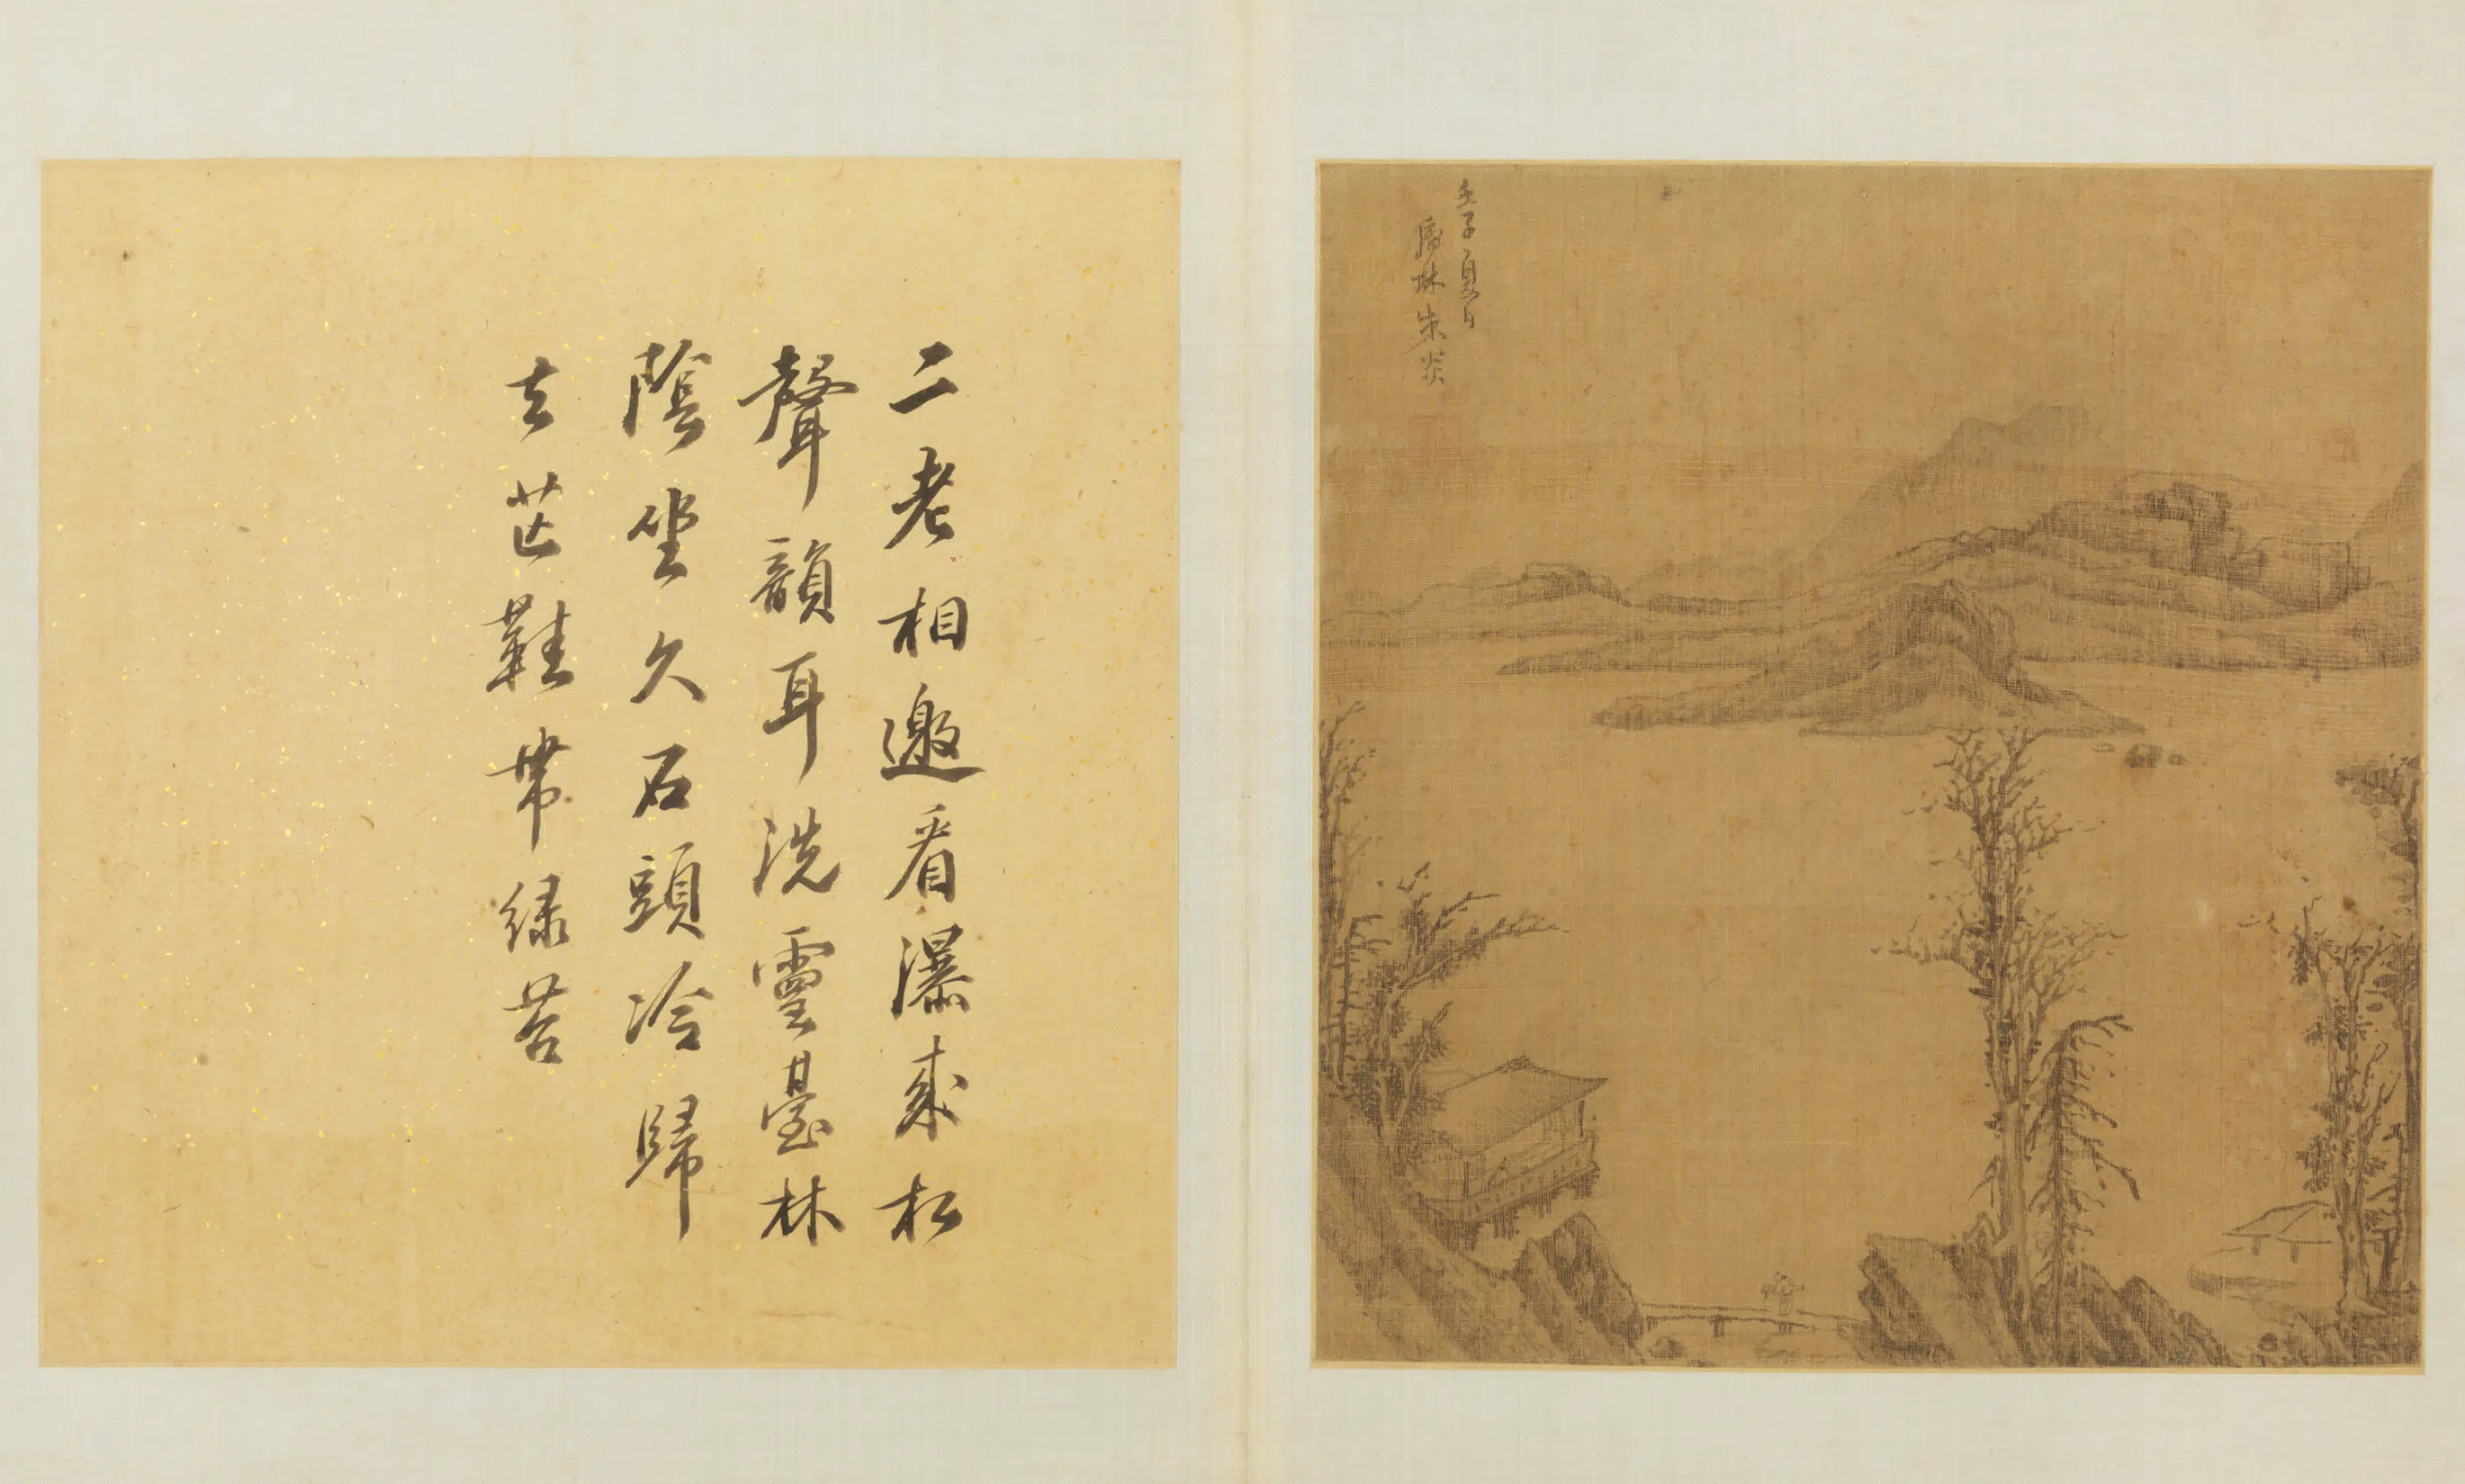 壬子夏日
虎林朱炎
二老相邀看瀑來松
聲韻耳洗靈臺林
陰坐久石頭冷歸
去芒鞋帶綠苔